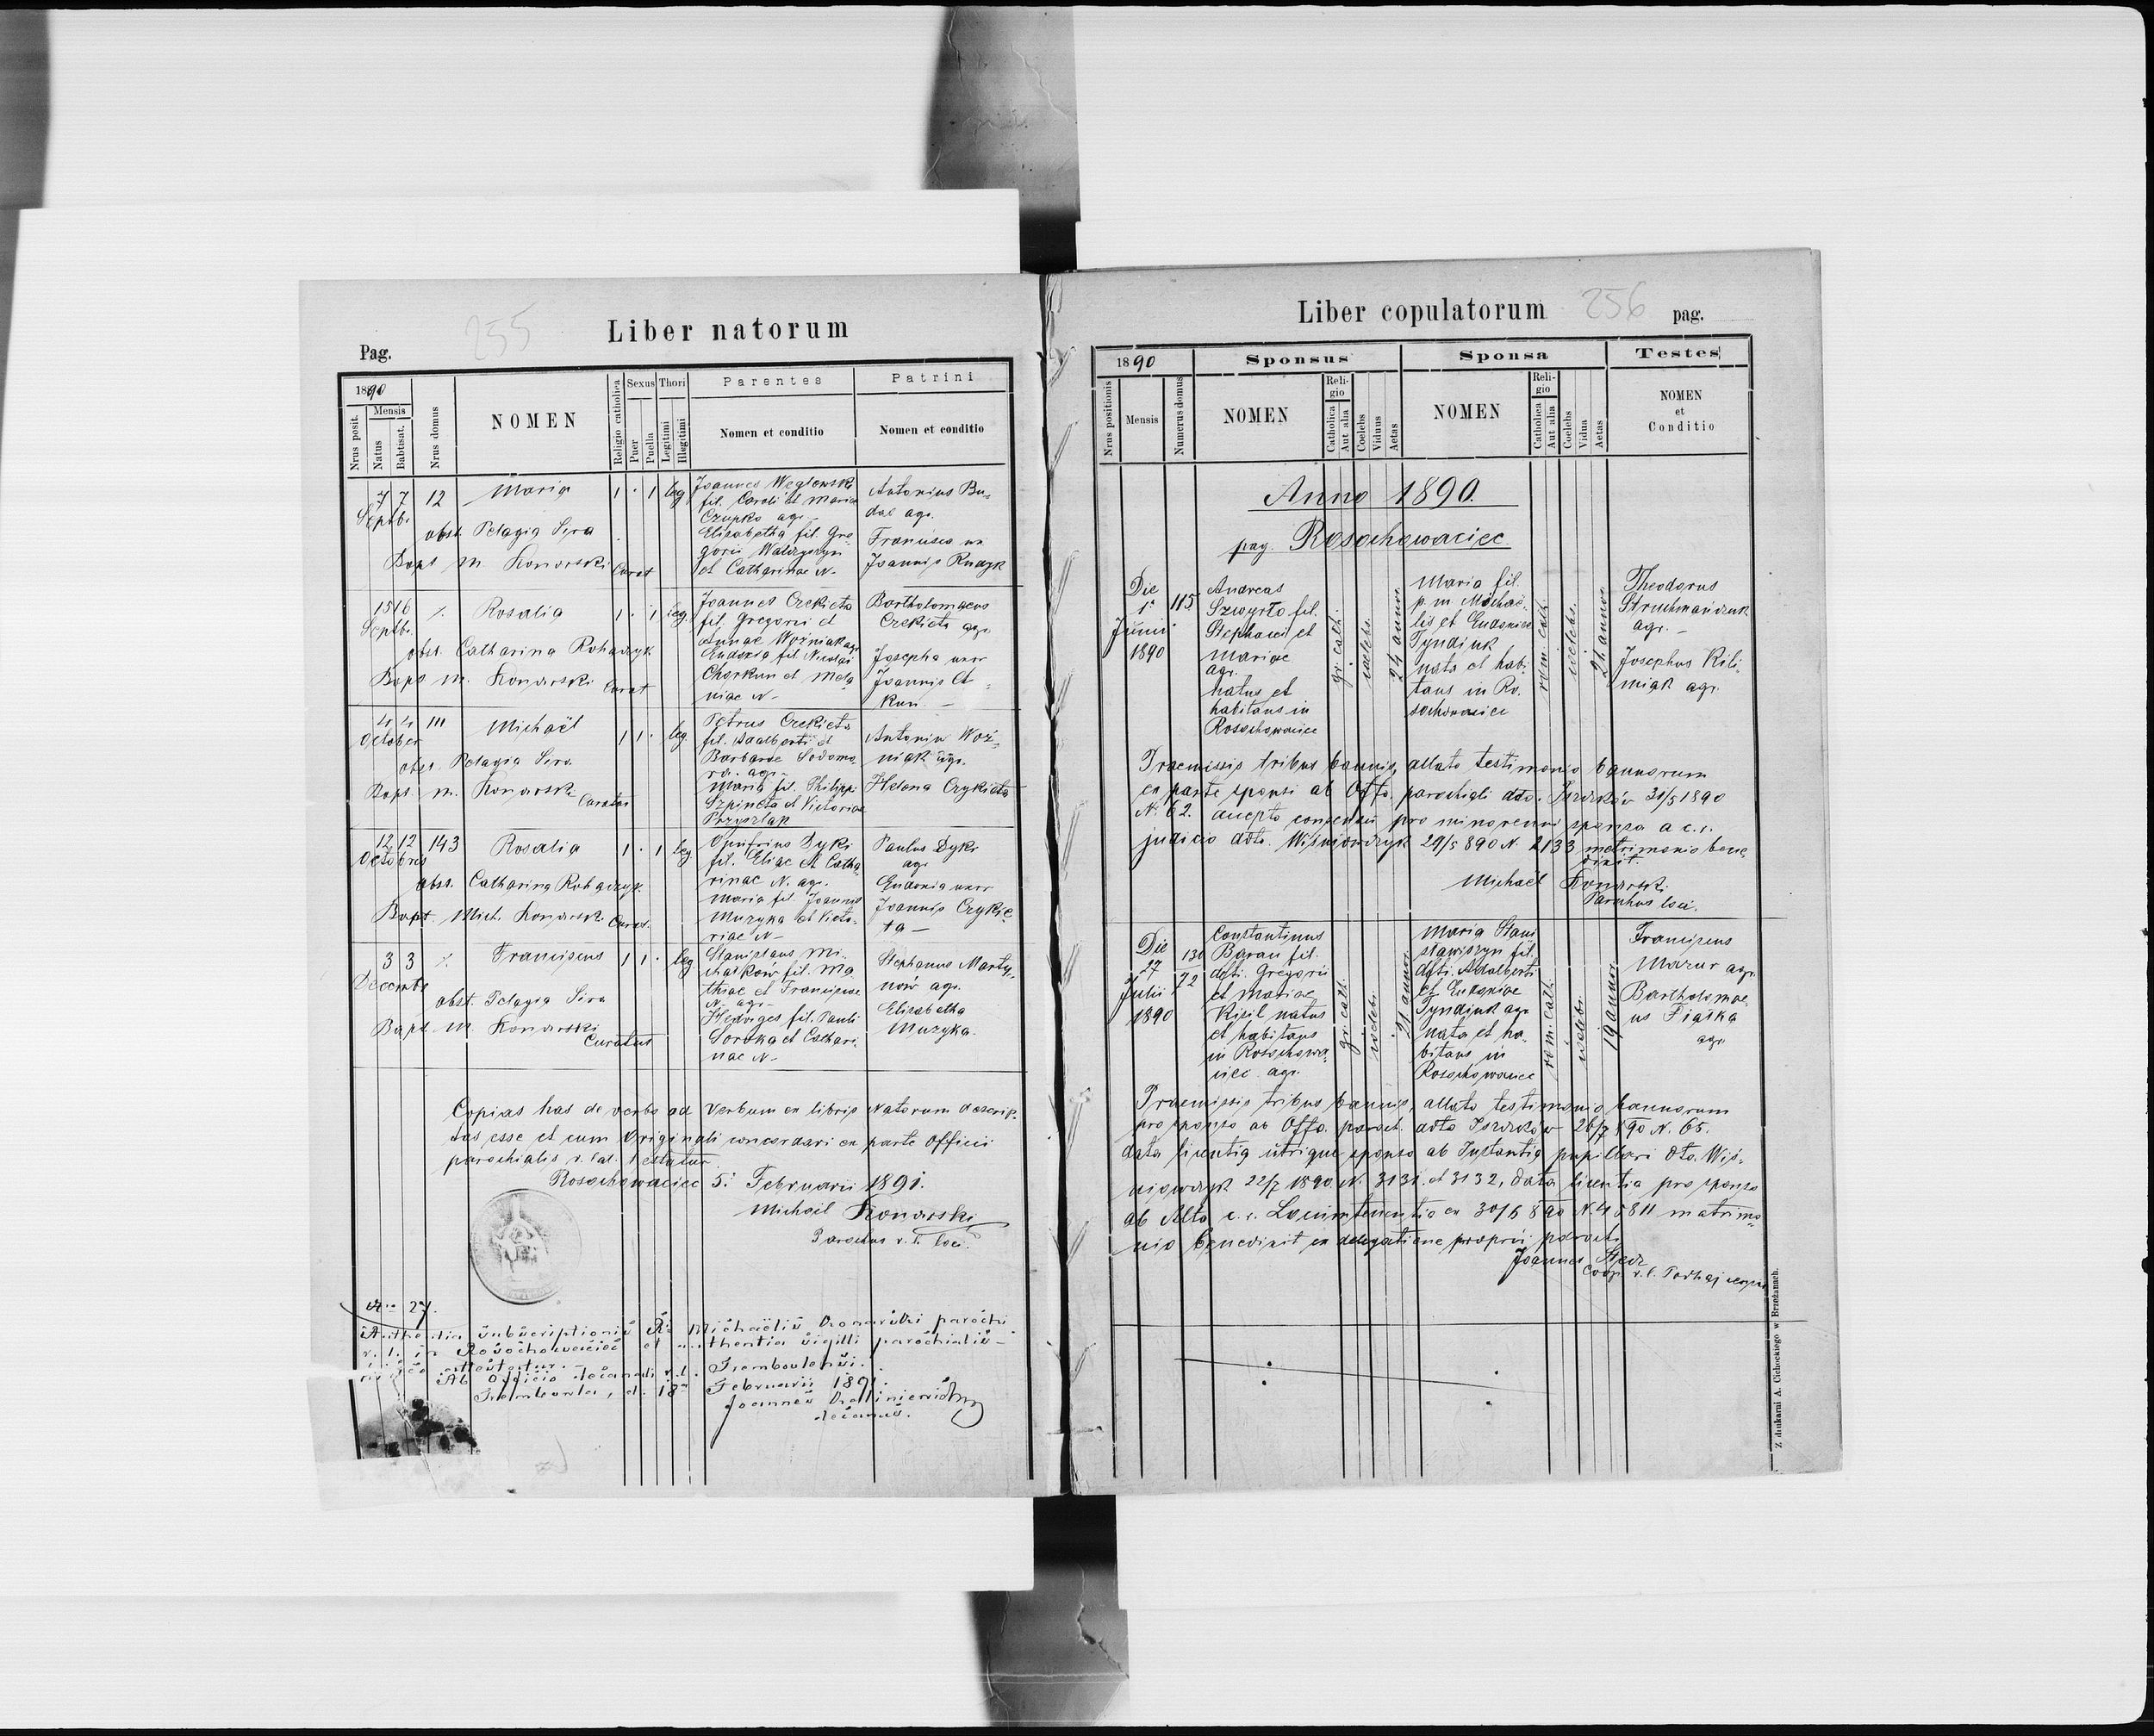 255
Liber natorum
Pag.
1890
Nrus posit.
Mensis
Natus
Babtisat.
Nrus domus
NOMEN
Religio catholica
Sexus
Puer
Puella
Thori
Legitimi
Illegitimi
Parentes
Nomen et conditio
Patrini
Nomen et conditio
7 7 12 Maria 1 · 1 leg
Septbr.
obst. Pelagia Sira
Bapt M. Konarski Curat
Joannes Węglowski
fil. Caroli et Mariae
Czupko agr.
Elisabetha fil. Gre-
gorii Walczyszyn
et Catharinae N-
Antonius Bu-
dal agr.
Joannis Rudyk
15 16 Rosalia 1 · 1 leg.
Septbr.
obst. Catharina Robaczyk
Bapt M. Konarski Curat
Joannes Czekieta
fil. Gregorii et
Annae Woźniak agr
Eudoxia fil. Nicolai
Chorkun et Mela-
niae N-
Bartholomaeus
Czekieta agr.
Josepha uxor
Joannis
4 4 111 Michaël 1 1 · leg
October
obst. Pelagia Sira
Bapt. M. Konarski Curatus
Petrus Czekieta
fil. Adalberti et
Barbarae Sodomo
ra. agr.
Maria fil. Philippi
Szpineta et Victoriae
Przyszlak
Antonin Woź-
niak agr.
Helena Czykieta
12 12 143 Rosalia 1 · 1 leg
Octobris
obst. Catharina Robaczyk
Bapt Mich. Konarski Curat.
Onufrius Dyki
fil. Eliae et Catha-
rinae N. agr.
Maria fil. Joannis
Muzyka et Victo-
riae N-
Paulus Dyki
agr
Eudoxia uxor
Joannis Czykie-
ta -
3 3 Franciscus 1 1 · leg
Decembr
obst. Pelagia Sira
Bapt M. Konarski Curatus
Stanislaus Mi-
chałków fil. Ma
thiae et Franciscae
N. agr-
Hedviges fil. Pauli
Soroka et Cathari-
nae N-
Stephanus Marty-
nów agr.
Elisabetha
Muzyka.
Copias has de verbo ad verbum ex libris Natorum descrip-
tas esse et cum Originali concordari ex parte Officii
parochialis r. lat. testatur
Rosochowaciec 5. Februarii 1891.
Michael Konarski
Parochus r. l. loci.
Nro 27.
Authentia subscriptionis Michaëlis Konarski parochi
r. l. in Rosochowaciec et authentia sigilli parochialis
attestatur.
Ab Officio decanali r. l. Trembovlensi.
Trembovla, d. 18 Februarii 1891.
Joannes
decanus.
Liber copulatorum 256 pag.
1890
Nrus positionis
Mensis
Numerus domus
Sponsus
NOMEN
Religio
Catholica
Aut alia
Coelebs
Viduus
Aetas
Sponsa
NOMEN
Religio
Catholica
Aut alia
Coelebs
Vidua
Aetas
Testes
NOMEN
et
Conditio
Anno 1890.
pag. Rosochowaciec.
Die
1a
Junii
1890
115
Andreas
Szwyrło fil.
Stephani et
Mariae
agr.
natus et
habitans in
Rosochowaciec
gr. cath.
coelebs.
24 annor.
Maria fil.
p. m. Michaë-
lis et Eudoxiae
Tyndiuk
nata et habi-
tans in Ro-
sochowaciec
rom. cath.
coelebs.
21 annor
Theodorus
Struchmańczuk
agr. -
Josephus Kili-
miak agr.
Praemissis tribus bannis, allato testimonio bannorum
ex parte sponsi ab Offo. parochiali dto. Iszczków 31/5 1890
N. 62. accepto consensu pro minorenni sponsa a c. r.
judicio dto. Wiśniowczyk 29/5 890 N. 2133 matrimonio bene-
dixit.
Michaël Konarski
Parochus loci.
Die
27
Julii
1890
130
72
Constantinus
Baran fil.
dfti. Gregorii
et Mariae
Kisil natus
et habitans
in Rosochowa-
ciec agr.
gr. cath.
coelebs.
21 annor.
Maria Stani
sławiszyn fil.
dfti. Adalberti
et Eudoxiae
Tyndiuk agr
nata et ha-
bitans in
Rosochowaciec
rom. cath.
coelebs.
19 annor.
Franciscus
Mazur agr.
Bartholomae-
us Fiałka
agr.
Praemissis tribus bannis, allato testimonio bannorum
pro sponso ab Offo. paroch. dto Iszczków 26/7 890 N. 65.
data licentia utrique sponso ab Instantia pupillari dto. Wiś-
niowczyk 22/7 1890 N. 3131. et 3132, data licentia pro sponso
ab Alta c. r. Locumtenentia ex 30/6 890 N. 40811 matrimo-
nio benedixit ex delegatione proprii parochi
Joannes
coop. r. l.
Z drukarni A. Cichockiego w Brzeżanach.